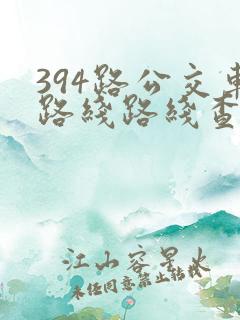 394路公交車
路綫路綫查
江山容星火
未经同意禁止转载